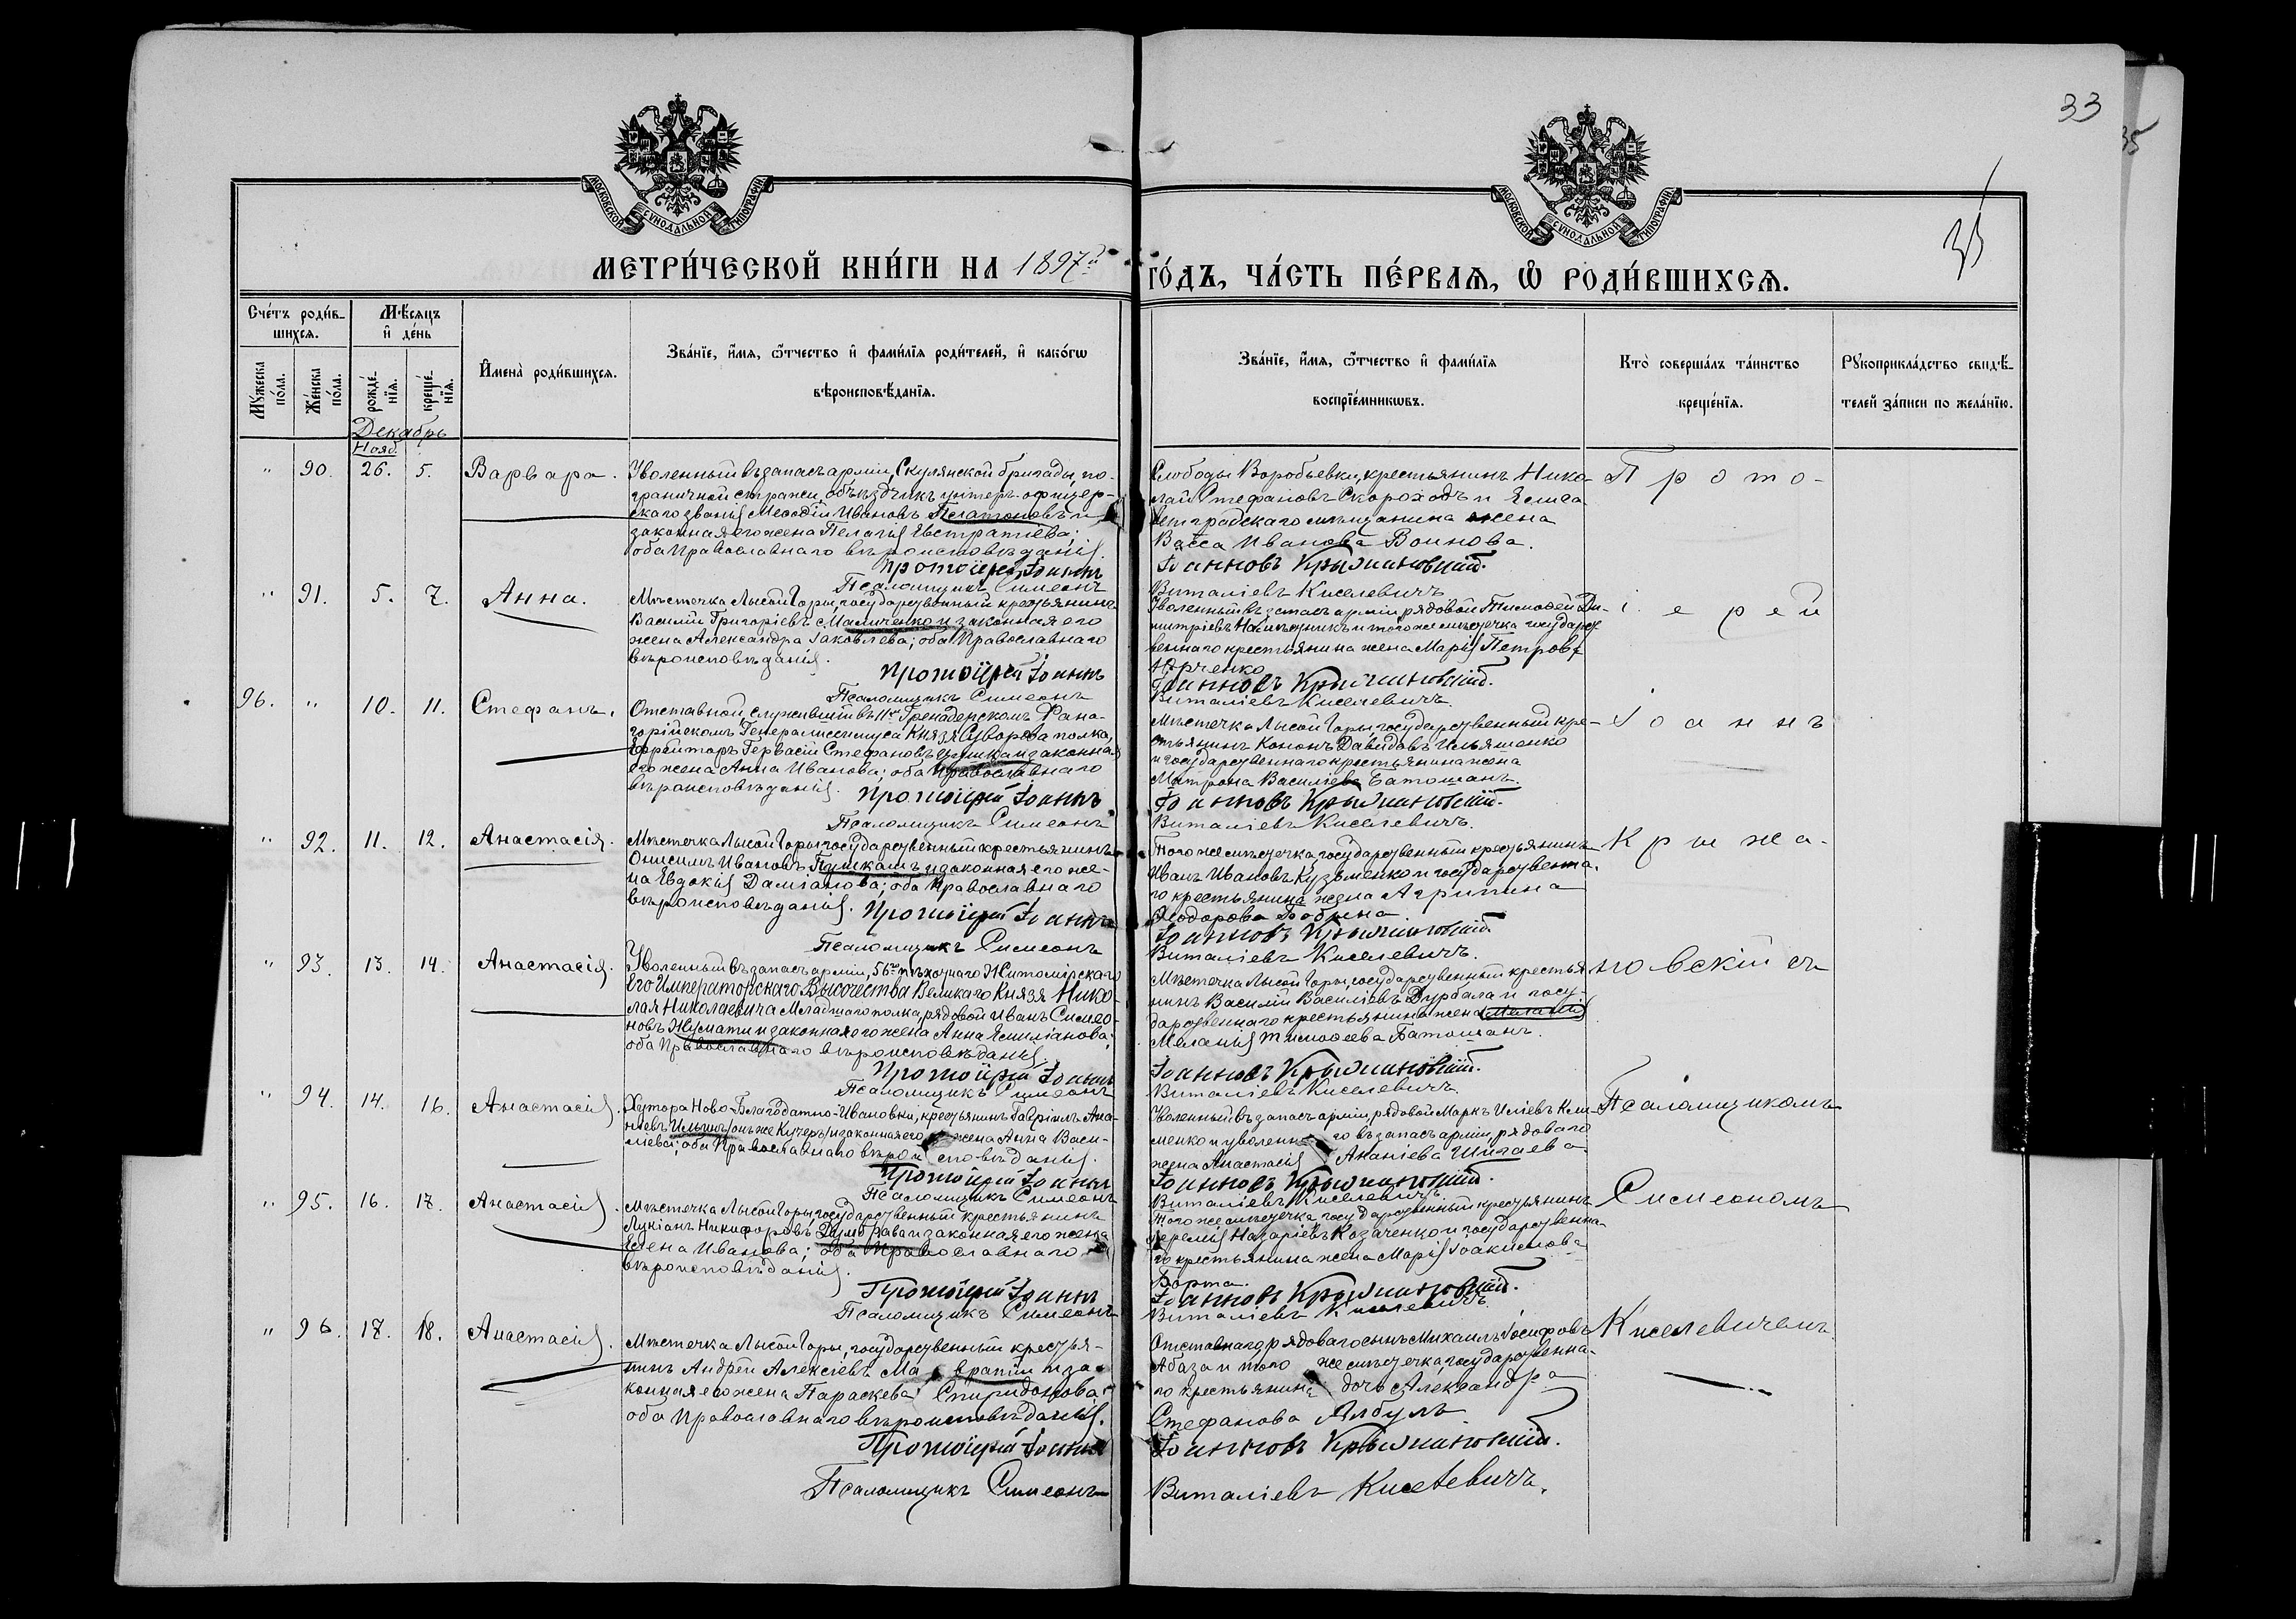 33
35
35
МОСКОВСКОЙ СУНОДАЛЬНОЙ ТИПОГРАФІИ.
МОСКОВСКОЙ СУНОДАЛЬНОЙ ТИПОГРАФІИ.
МЕТРИ́ЧЕСКОЙ КНИ́ГИ НА 1897й ГО́ДЪ, ЧА́СТЬ ПЕ́РВАѦ, Ѽ РОДИ́ВШИХСѦ.
Сче́тъ роди́в-
шихсѧ.
Мѣ́сѧцъ
и҆ де́нь
Мꙋ́жеска по́ла.
Же́нска по́ла.
рожде́-
нїѧ.
креще́-
нїѧ.
И҆мена̀ роди́вшихсѧ.
Зва́нїе, и҆́мѧ, ѻ҆́тчество и҆ фами́лїѧ роди́телей, и҆ како́гѡ
вѣроисповѣ́данїѧ.
Зва́нїе, и҆́мѧ, ѻ҆́тчество и҆ фами́лїѧ
воспрїе́мникѡвъ.
Кто̀ соверша́лъ та́инство
креще́нїѧ.
Рꙋкоприкла́дство свидѣ́-
телей за́писи по жела́нїю.
Декабрь
Нояб.
" 90. 26. 5. Варвара.
Уволенный въ запасъ арміи, Скулянской бригады, по-
граничной стражи, объѣздчикъ унтеръ-офицер-
скаго званія Меѳодій Ивановъ Платоновъ и
законная его жена Пелагія Евстратіева;
оба Православнаго вѣроисповѣданія.
Протоіерей Іоаннъ
Псаломщикъ Симеонъ
Слободы Воробьевки, крестьянинъ Нико-
лай Стефановъ Скороходъ и Елиса
ветградскаго мѣщанина жена
Васса Иванова Воинова.
Іоанновъ Крыжановскій.
Виталіевъ Киселевичъ
Прото-
" 91. 5. 7. Анна.
Мѣстечка Лысой Горы, государственный крестьянинъ
Василій Григоріевъ Маличенко и законная его
жена Александра Іаковлева; оба Православнаго
вѣроисповѣданія.
Протоіерей Іоаннъ
Псаломщикъ Симеонъ
Уволенный въ запасъ арміи рядовой Тимоѳей Ди-
митріевъ и того же мѣстечка государст
веннаго крестьянина жена Марія Петрова
Юрченко
Іоанновъ Крыжановскій.
Виталіевъ Киселевичъ.
іерей
96. " 10. 11. Стефанъ.
Отставной, служившій въ 11м Гренадерскомъ Фана-
горійскомъ Генералиссимуса Князя Суворова полка,
Ефрейторъ Гервасій Стефановъ и законная
его жена Анна Иванова; оба Православнаго
вѣроисповѣданія.
Протоіерей Іоаннъ
Псаломщикъ Симеонъ
Мѣстечка Лысой Горы, государственный кре-
стьянинъ Кононъ Давидовъ Ильяшенко
и государственнаго крестьянина жена
Матрона Василіева Батошанъ.
Іоанновъ Крыжановскій.
Виталіевъ Киселевичъ.
Іоаннъ
" 92. 11. 12. Анастасія.
Мѣстечка Лысой Горы, государственный крестьянинъ
Онисимъ Ивановъ Пушкашъ и законная его же-
на Евдокія Даміанова; оба Православнаго
вѣроисповѣданія.
Протоіерей Іоаннъ
Псаломщикъ Симеонъ
Того же мѣстечка, государственный крестьянинъ
Иванъ Ивановъ Кузьменко и государственна-
го крестьянина жена Агрипина
Ѳеодорова Бобрена.
Іоанновъ Крыжановскій.
Виталіевъ Киселевичъ.
Крижа-
" 93. 13. 14. Анастасія.
Уволенный въ запасъ арміи, 56го пѣхотнаго Житомірскаго
Его Императорскаго Высочества Великаго Князя Нико-
лая Николаевича Младшаго полка, рядовой Иванъ Симео-
новъ Жумати и законная его жена Анна Емиліанова;
оба Православнаго вѣроисповѣданія.
Протоіерей Іоаннъ
Псаломщикъ Симеонъ
Мѣстечка Лысой Горы, государственный крестья
нинъ Василій Василіевъ Дурбала и госу-
дарственнаго крестьянина жена (Меланія)
Меланія Тимоѳеева Батошанъ.
Іоанновъ Крыжановскій.
Виталіевъ Киселевичъ.
новскій съ
" 94. 14. 16. Анастасія.
Хутора Ново-Благодатно-Ивановки, крестьянинъ Гавріилъ Ана-
ніевъ Ильинъ /онъ же Кучеръ/ и законная его жена Анна Васи-
ліева; оба Православнаго вѣроисповѣданія.
Протоіерей Іоаннъ
Псаломщикъ Симеонъ
Уволенный въ запасъ арміи, рядовой Маркъ Иліевъ Кли-
менко и уволеннаго въ запасъ арміи, рядоваго
жена Анастасія Ананіева Шигаева
Іоанновъ Крыжановскій.
Виталіевъ Киселевичъ.
Псаломщикомъ
" 95. 16. 17. Анастасія.
Мѣстечка Лысой Горы, государственный крестьянинъ
Лукіанъ Никифоровъ Думбрава и законная его жена
Елена Иванова; оба Православнаго
вѣроисповѣданія.
Протоіерей Іоаннъ
Псаломщикъ Симеонъ
Того же мѣстечка государственный крестьянинъ
Іеремія Назаріевъ Козаченко и государственна-
го крестьянина жена Марія Іоакимова
Борта.
Іоанновъ Крыжановскій.
Виталіевъ Киселевичъ.
Симеономъ
" 96. 17. 18. Анастасія.
Мѣстечка Лысой Горы, государственный крестья-
нинъ Андрей Алексіевъ Мавратій и за-
конная его жена Параскева Спиридонова;
оба Православнаго вѣроисповѣданія.
Протоіерей Іоаннъ
Псаломщикъ Симеонъ
Отставнаго рядоваго сынъ Михаилъ Іосифовъ
Абаза и того же мѣстечка, государственна-
го крестьянина дочь Александра
Стефанова Албулъ
Іоанновъ Крыжановскій.
Виталіевъ Киселевичъ.
Киселевичемъ